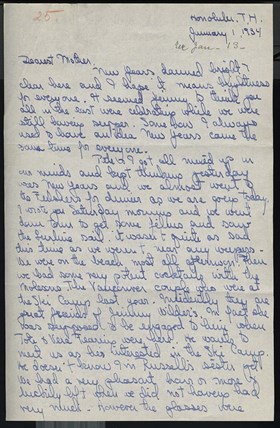 25.
Honolulu. T.H.
January 1, 1934
Dearest Mother,
New Years dawned bright &
clear here and I hope it means brightness
for everyone. It seemed funny to think you
all in the east were celebrating while we were
still having supper. Some how I always
used to have an idea New Years came the
same time for everyone.
Pete & I got all mixed up in
our minds and kept thinking yesterday
was New Years and we almost went to
the for dinner as we are going today.
I wrote you Saturday morning and we went
down town to get some and say
the sail. It wasn't quite as
this time as we weren't near any
We were on the beach most all afternoon. Then
we had some very potent cocktails with the
The Vancouver couple who were at
the Ski Camp last year. Incidentally they are
great friends of Jimmy In fact she
was supposed to be engaged to him when
Pete & were here. He wants to
meet us as he's interested in the Ski Camp.
He doesn't
We had a very pleasant hour or more &
luckily left while we did not having had
very much. However the glasses were